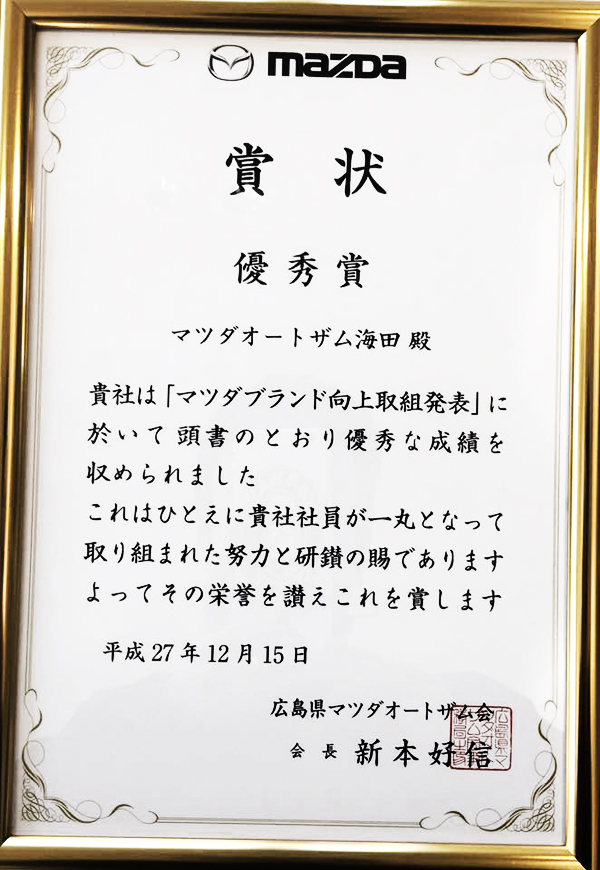 mazda
賞状
優秀賞
マツダオートザム海田 殿
貴社は「マツダブランド向上取組発表」に
於いて頭書のとおり優秀な成績を
収められました
これはひとえに貴社社員が一丸となって
取り組まれた努力と研鑽の賜であります
よってその栄誉を讃えこれを賞します
平成27年12月15日
広島県マツダオートザム会
会長 新本好信